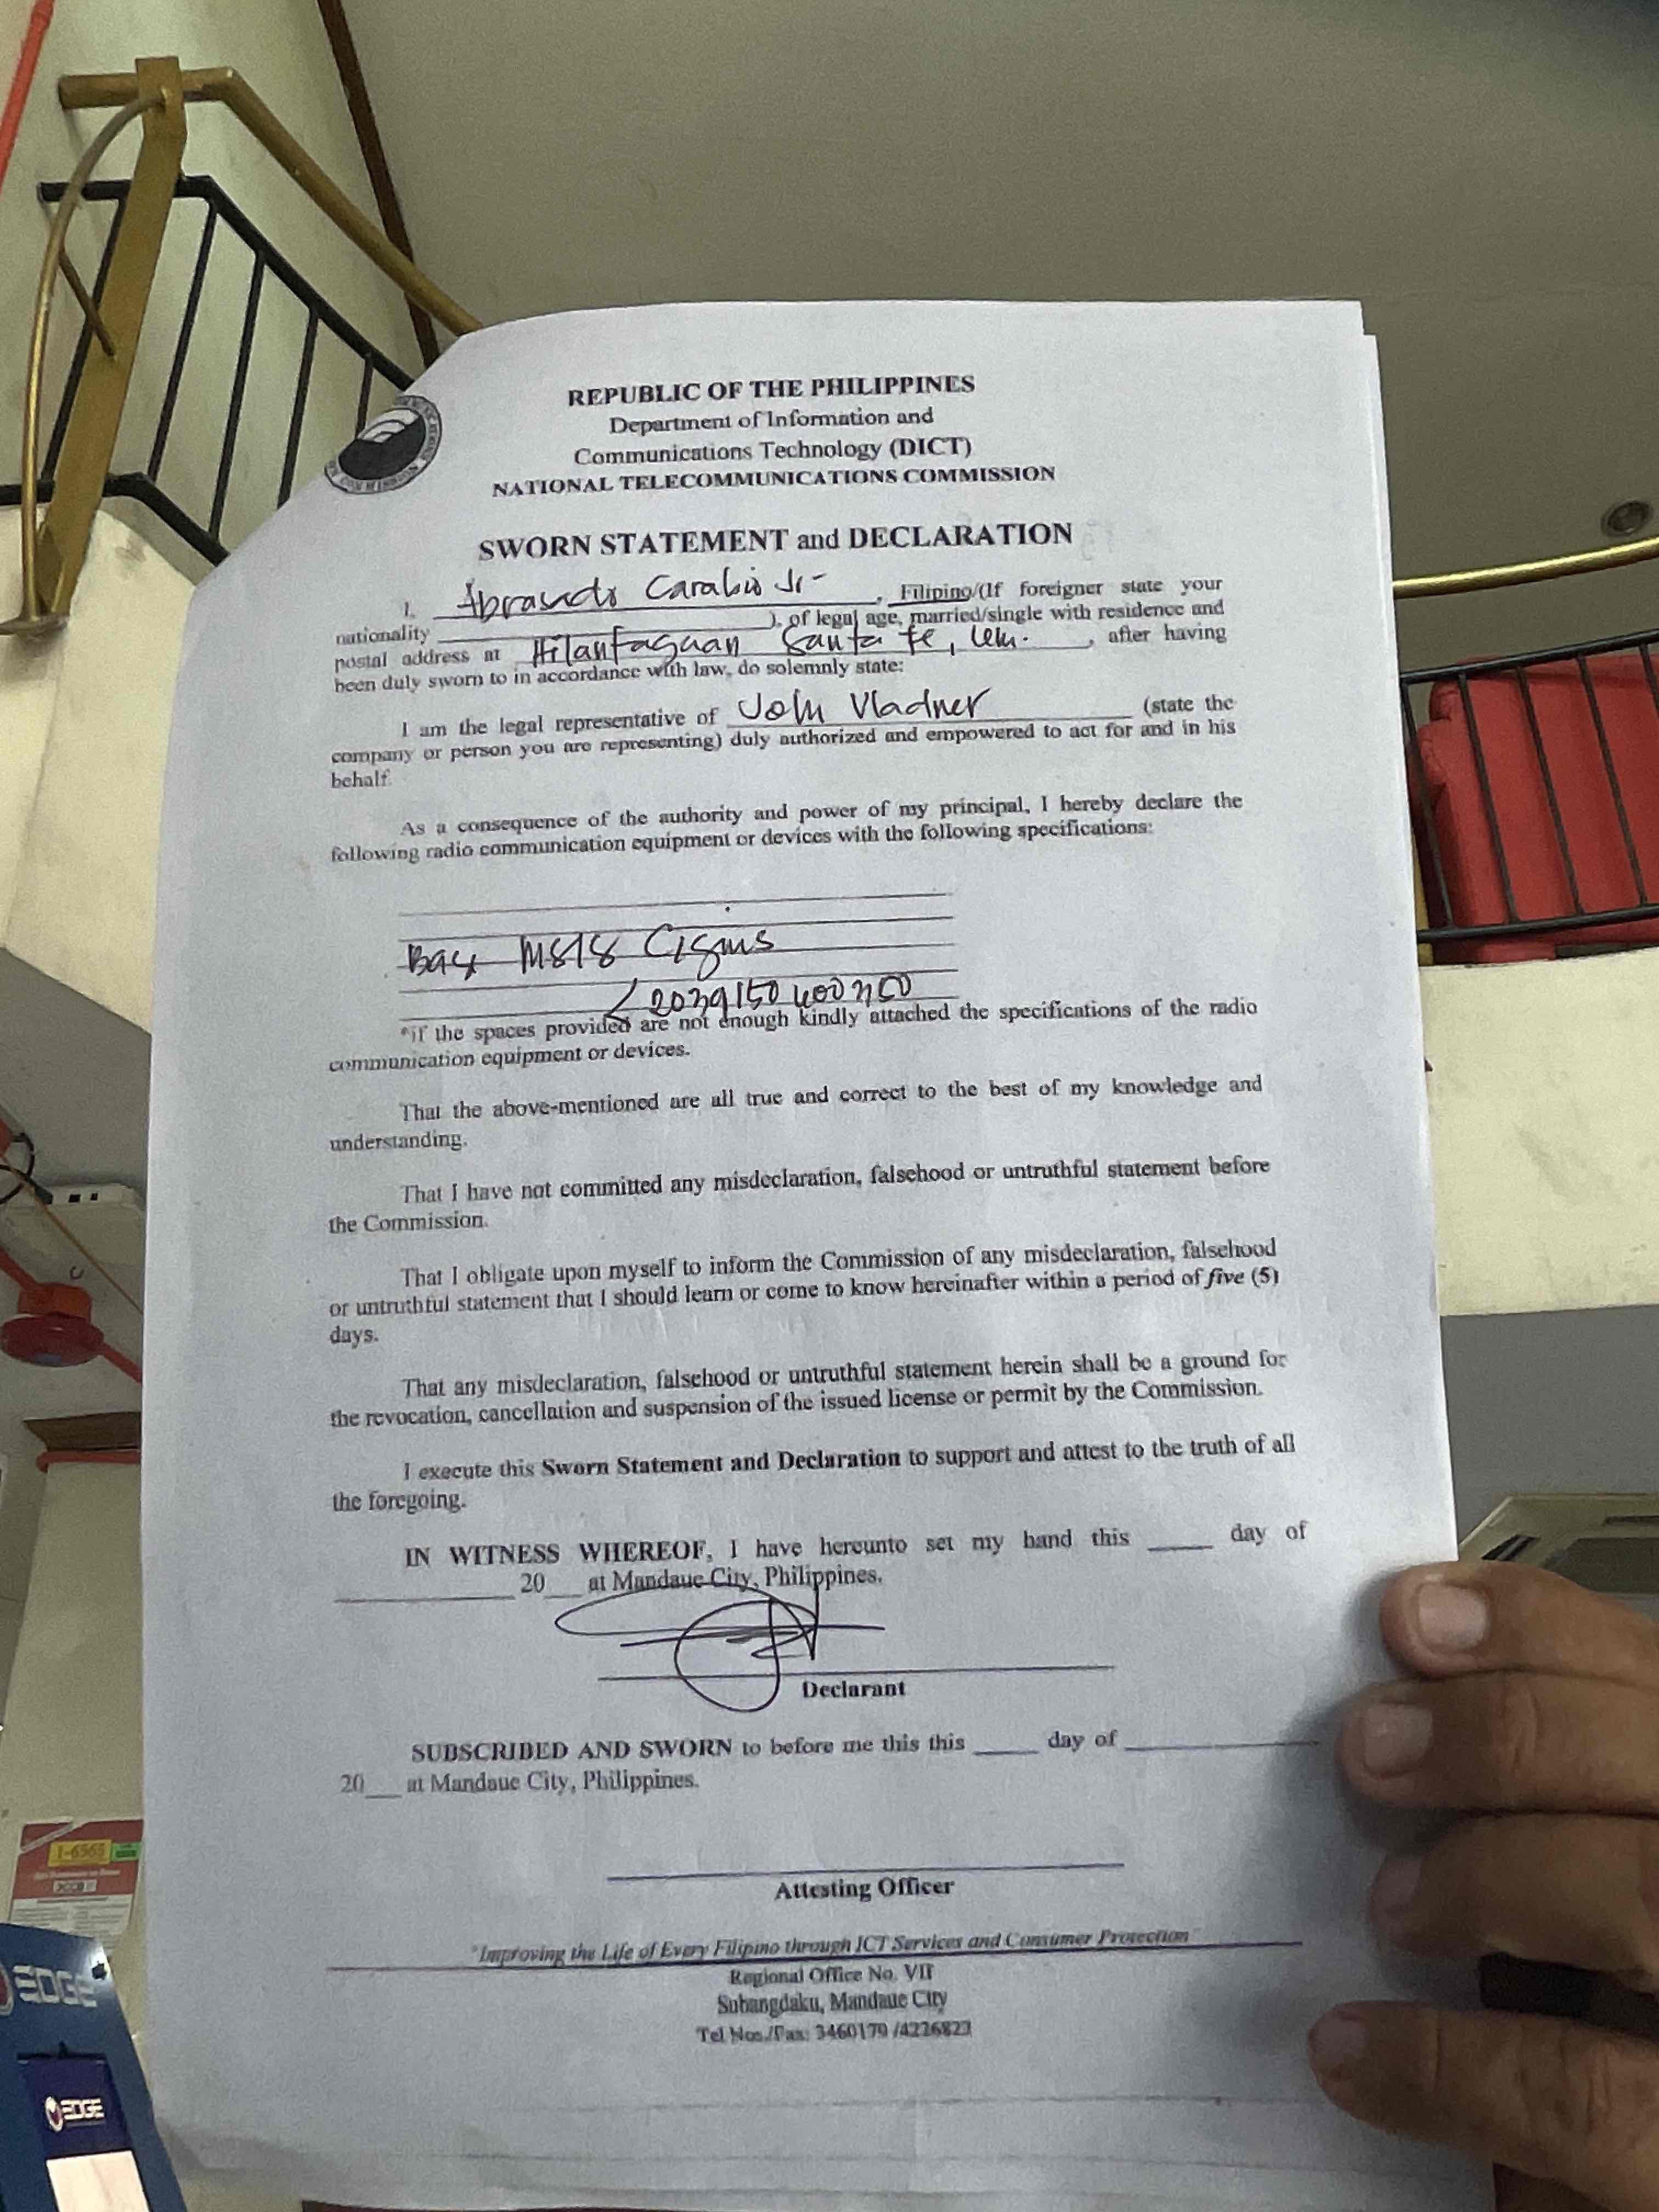 REPUBLIC OF THE PHILIPPINES
Department of Information and
Communications Technology (DICT)
NATIONAL TELECOMMUNICATIONS COMMISSION
SWORN STATEMENT and DECLARATION
I, Carabio Jr , Filipino/(If foreigner state your
nationality ____________), of legal age, married/single with residence and
postal address at Santa Fe, , after having
been duly sworn to in accordance with law, do solemnly state:
I am the legal representative of John Vladner (state the
company or person you are representing) duly authorized and empowered to act for and in his
behalf.
As a consequence of the authority and power of my principal, I hereby declare the
following radio communication equipment or devices with the following specifications:
*if the spaces provided are not enough kindly attached the specifications of the radio
communication equipment or devices.
That the above-mentioned are all true and correct to the best of my knowledge and
understanding.
That I have not committed any misdeclaration, falsehood or untruthful statement before
the Commission.
That I obligate upon myself to inform the Commission of any misdeclaration, falsehood
or untruthful statement that I should learn or come to know hereinafter within a period of five (5)
days.
That any misdeclaration, falsehood or untruthful statement herein shall be a ground for
the revocation, cancellation and suspension of the issued license or permit by the Commission.
I execute this Sworn Statement and Declaration to support and attest to the truth of all
the foregoing.
IN WITNESS WHEREOF, I have hereunto set my hand this _____ day of
____________ 20___ at Mandaue City, Philippines.
Declarant
SUBSCRIBED AND SWORN to before me this this _____ day of ____________
20___ at Mandaue City, Philippines.
Attesting Officer
"Improving the Life of Every Filipino through ICT Services and Consumer Protection"
Regional Office No. VII
Subangdaku, Mandaue City
Tel Nos./Fax: 3460179 /4226823
1-6565
EDGE
EDGE